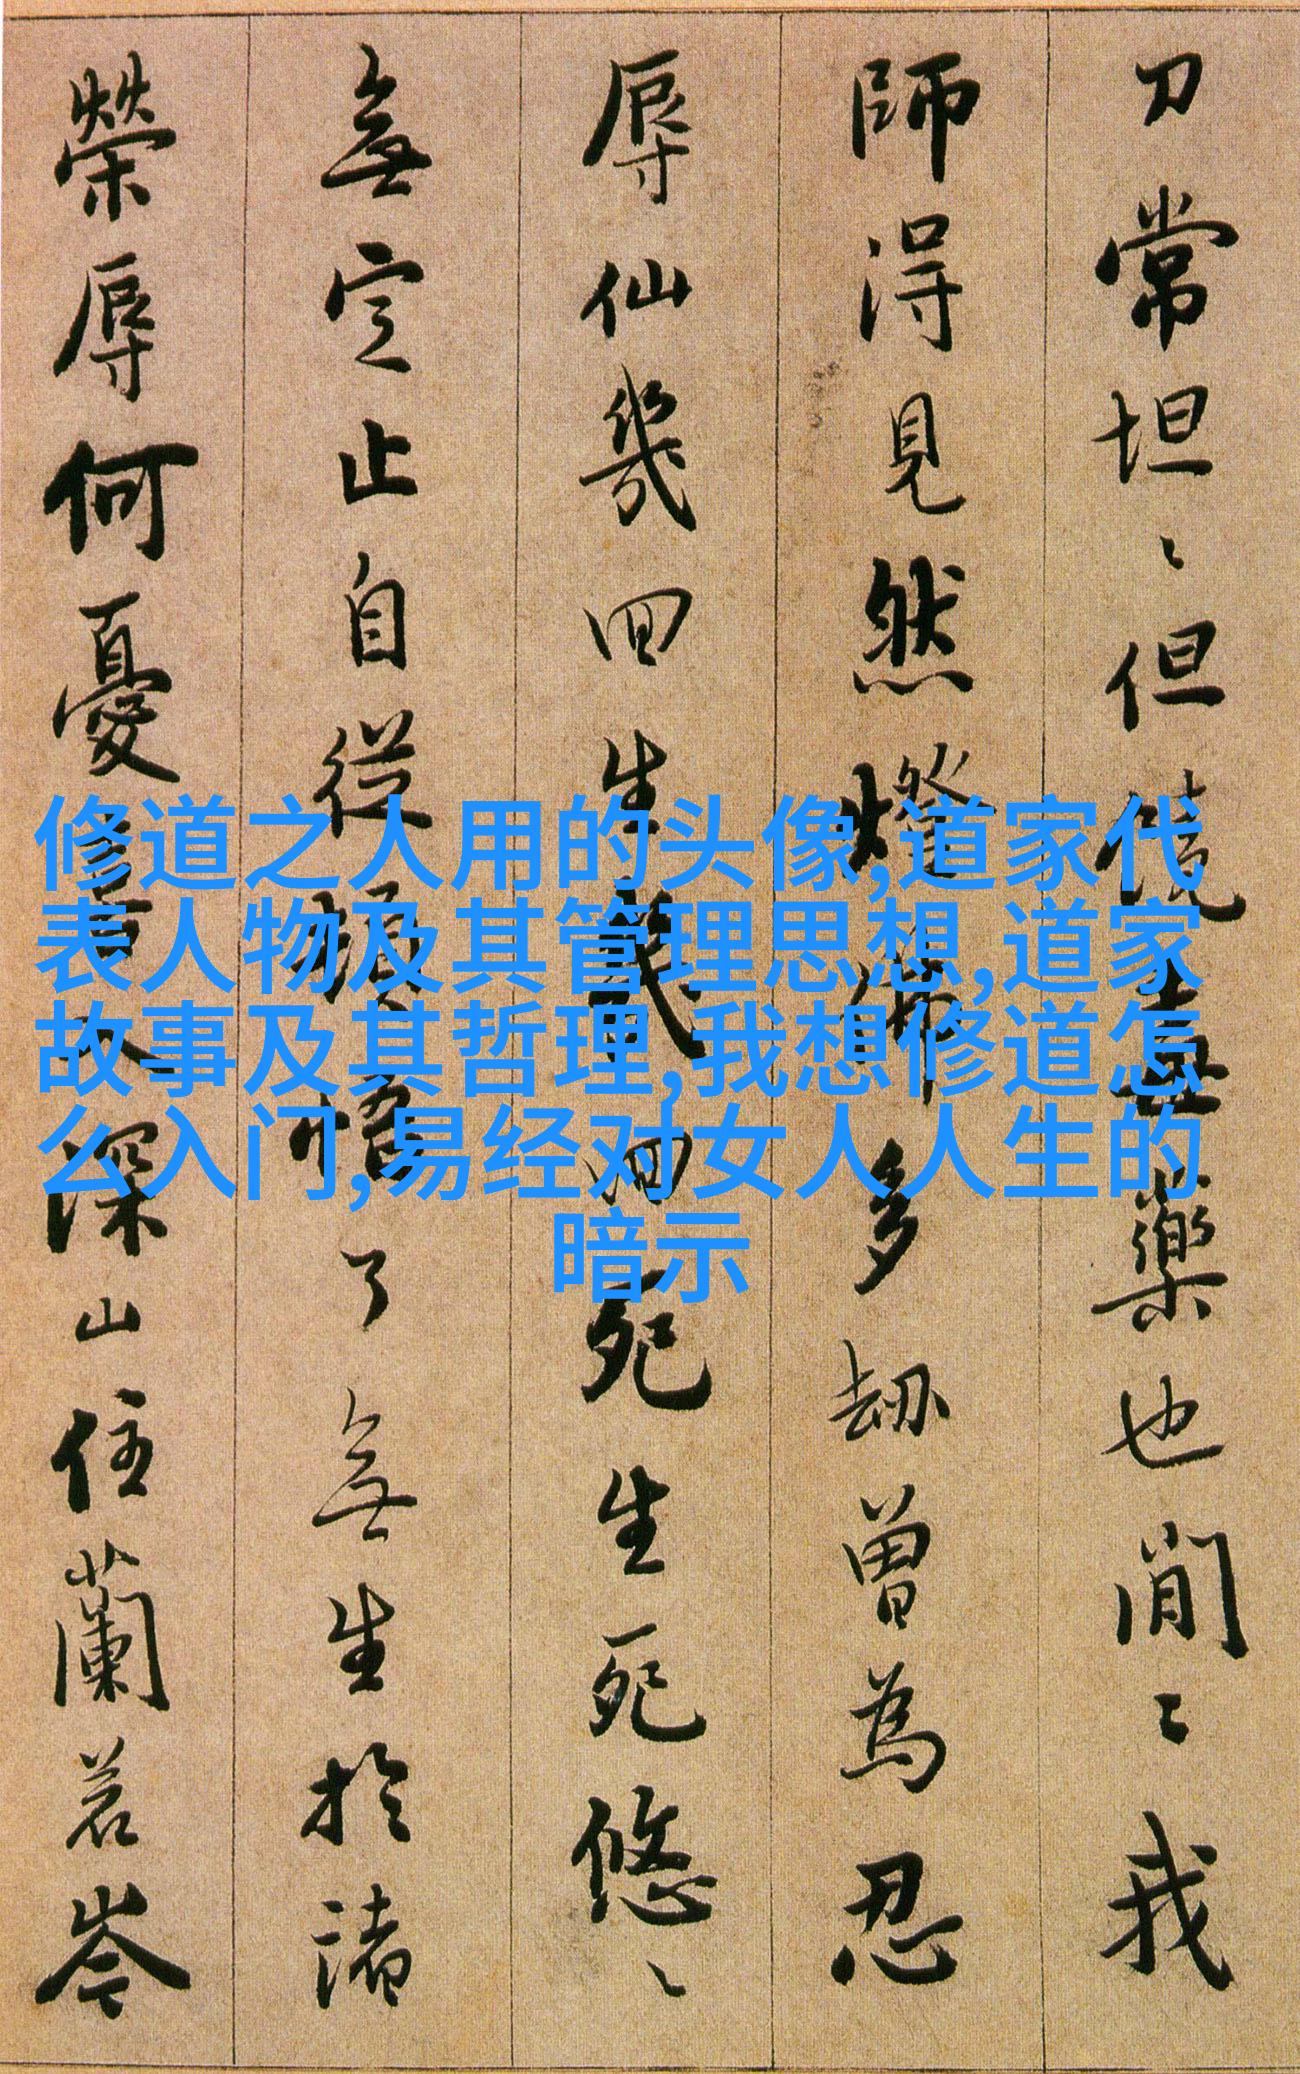 刀常坦〻但饒毒藥也閒〻我
師得見然燈佛多劫曾為忍
辱仙幾回生幾回死生死悠〻
無定止自從頓悟了無生於諸
榮辱何憂喜入深山住蘭若岑
修道之人用的头像,道家代
表人物及其管理思想,道家
故事及其哲理,我想修道怎
么入门,易经对女人人生的
暗示